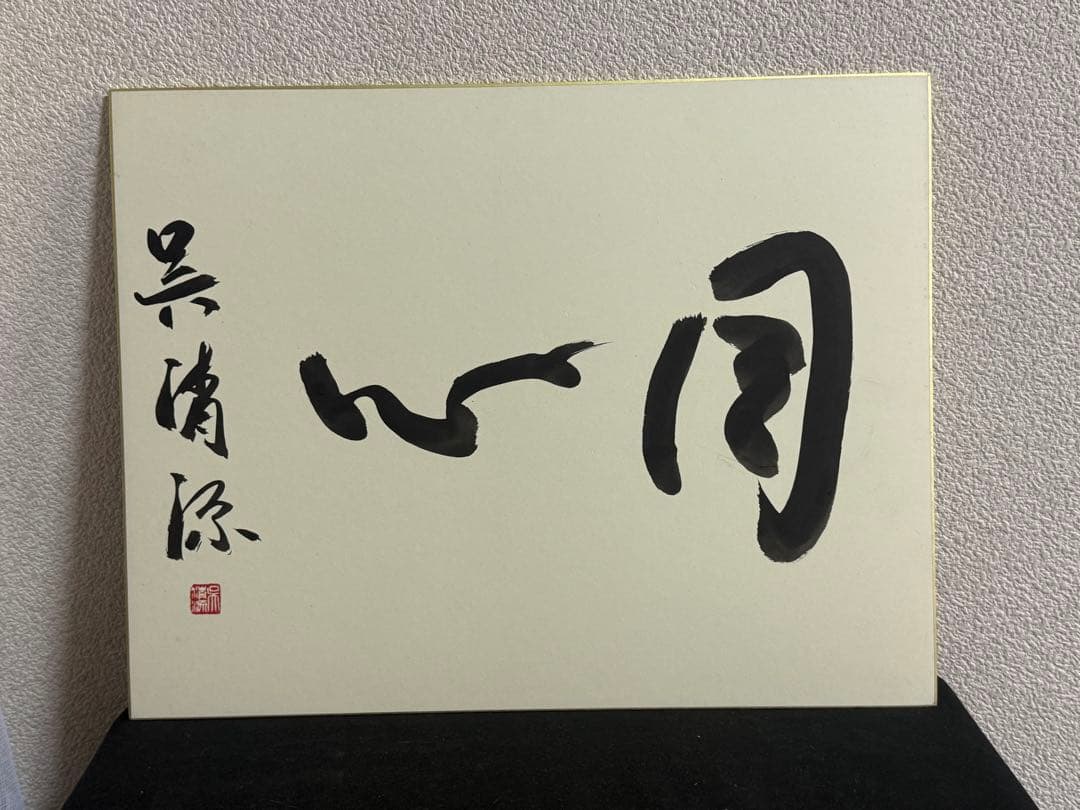 同心
呉清源